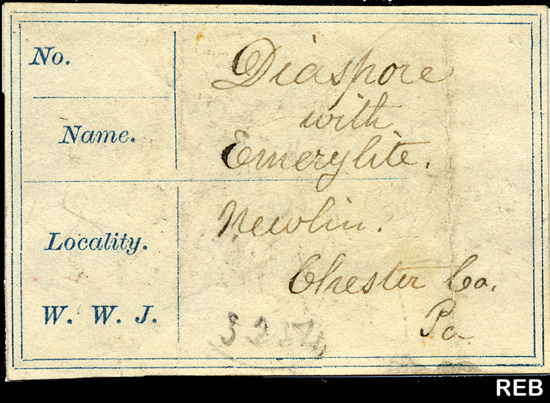 No.
Diaspore
with
Name.
Emerylite.
Newlin.
Locality.
Chester Co.
W. W. J.
Pa
REB